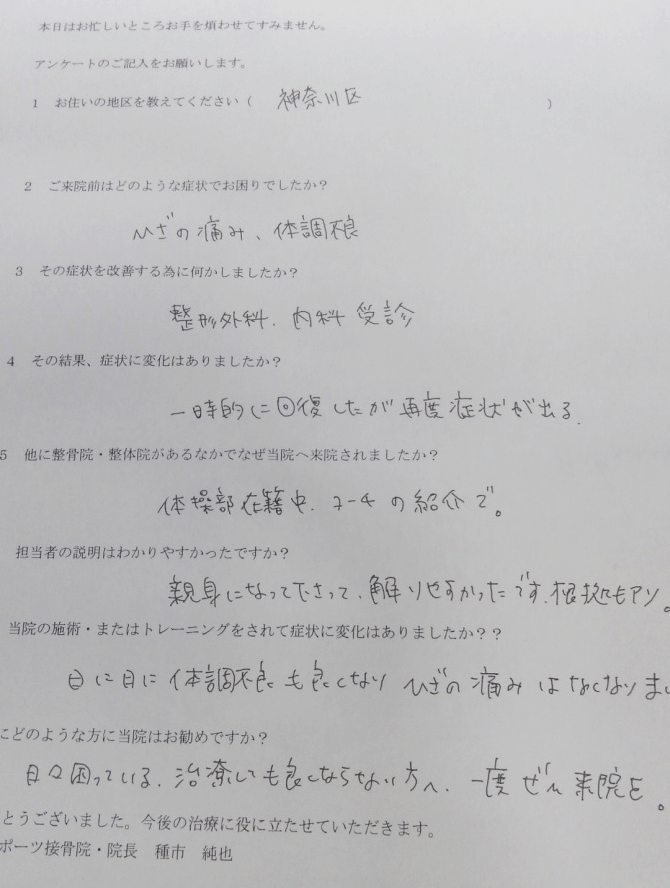 本日はお忙しいところお手を煩わせてすみません。
アンケートのご記入をお願いします。
1 お住いの地区を教えてください( 神奈川区 )
2 ご来院前はどのような症状でお困りでしたか?
ひざの痛み、体調不良
3 その症状を改善する為に何かしましたか?
整形外科、内科 受診
4 その結果、症状に変化はありましたか?
一時的に回復したが再度症状が出る。
5 他に整骨院・整体院があるなかでなぜ当院へ来院されましたか?
体操部在籍中、コーチの紹介で。
担当者の説明はわかりやすかったですか?
親身になって下さって、解りやすかったです、根拠もアリ。
当院の施術・またはトレーニングをされて症状に変化はありましたか??
日に日に体調不良も良くなり ひざの痛みはなくなりまし
にどのような方に当院はお勧めですか?
日々困っている、治療しても良くならない方へ、一度ぜひ来院を。
とうございました。今後の治療に役に立たせていただきます。
ポーツ接骨院・院長 種市 純也